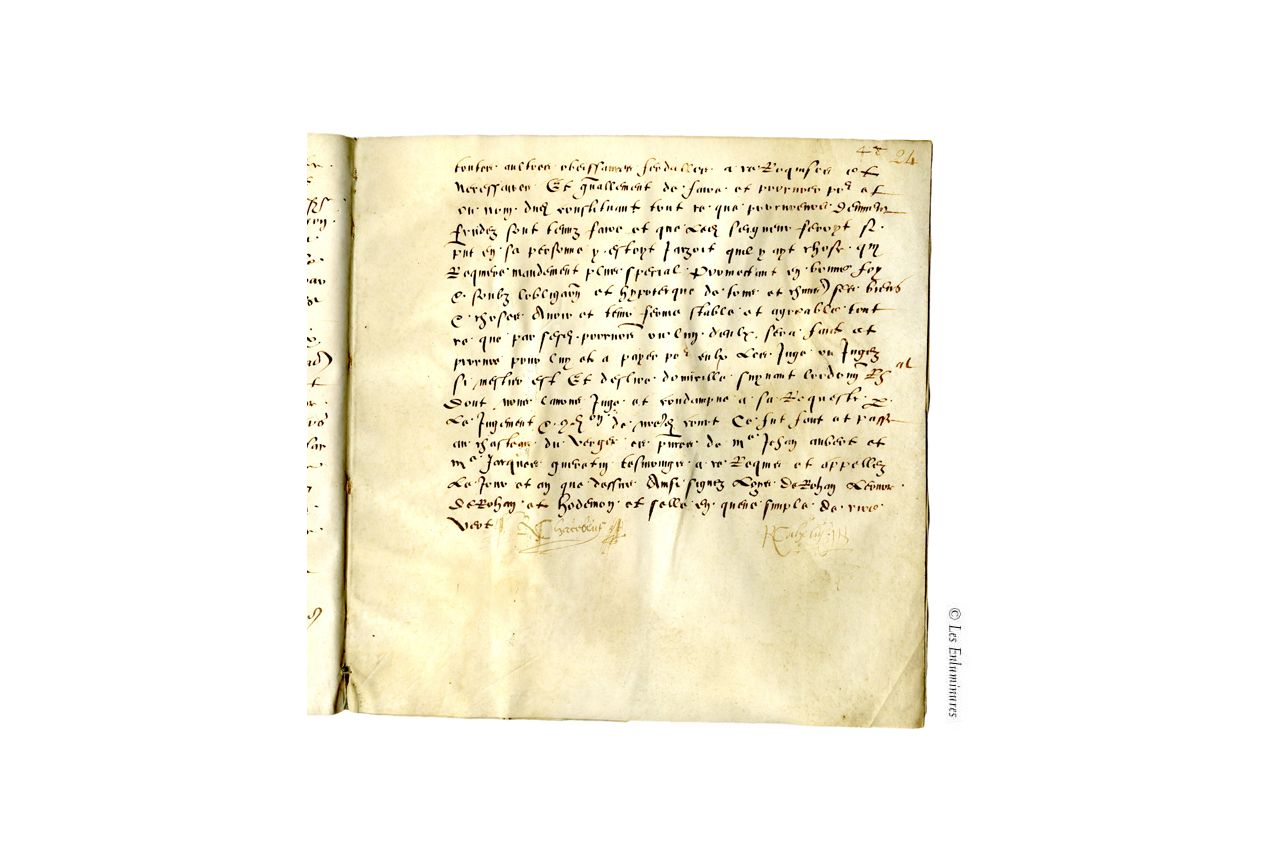 4e 24
toutes aultres obeissances feodalles a ce Requises et
necessaires Et generallement de faire et procurer pour et
ou nom dudit constituant tout ce que procureurs
sont tenuz faire et que ledit seigneur feroyt si
present en sa personne y estoyt Jaczoit quil y ayt chose qui
Requiere mandement plus special Promectant en bonne foy
et soubz lobligacion et hypotecque de tous et chascuns ses biens
et choses Avoir et tenir ferme stable et agreable tout
ce que par sesdits procureurs ou luy deulx sera faict et
procure pour luy et a payer pour eulx Les Juge ou Jugez
si mestier est Et deslire domicille suyvant lordonnance
Dont nous lavons Juge et condampne a sa Requeste
Le Jugement de court Ce fut fait et passe
au chasteau du Verger es presences de me Jehan aubert et
me Jacques tesmoings a ce Requis et appellez
Le Jour et an que dessus Ainsi signez Loys de Rohan Leonor
de Rohan et hodemon et selle en queue simple de cire
vert
© Les Enluminures